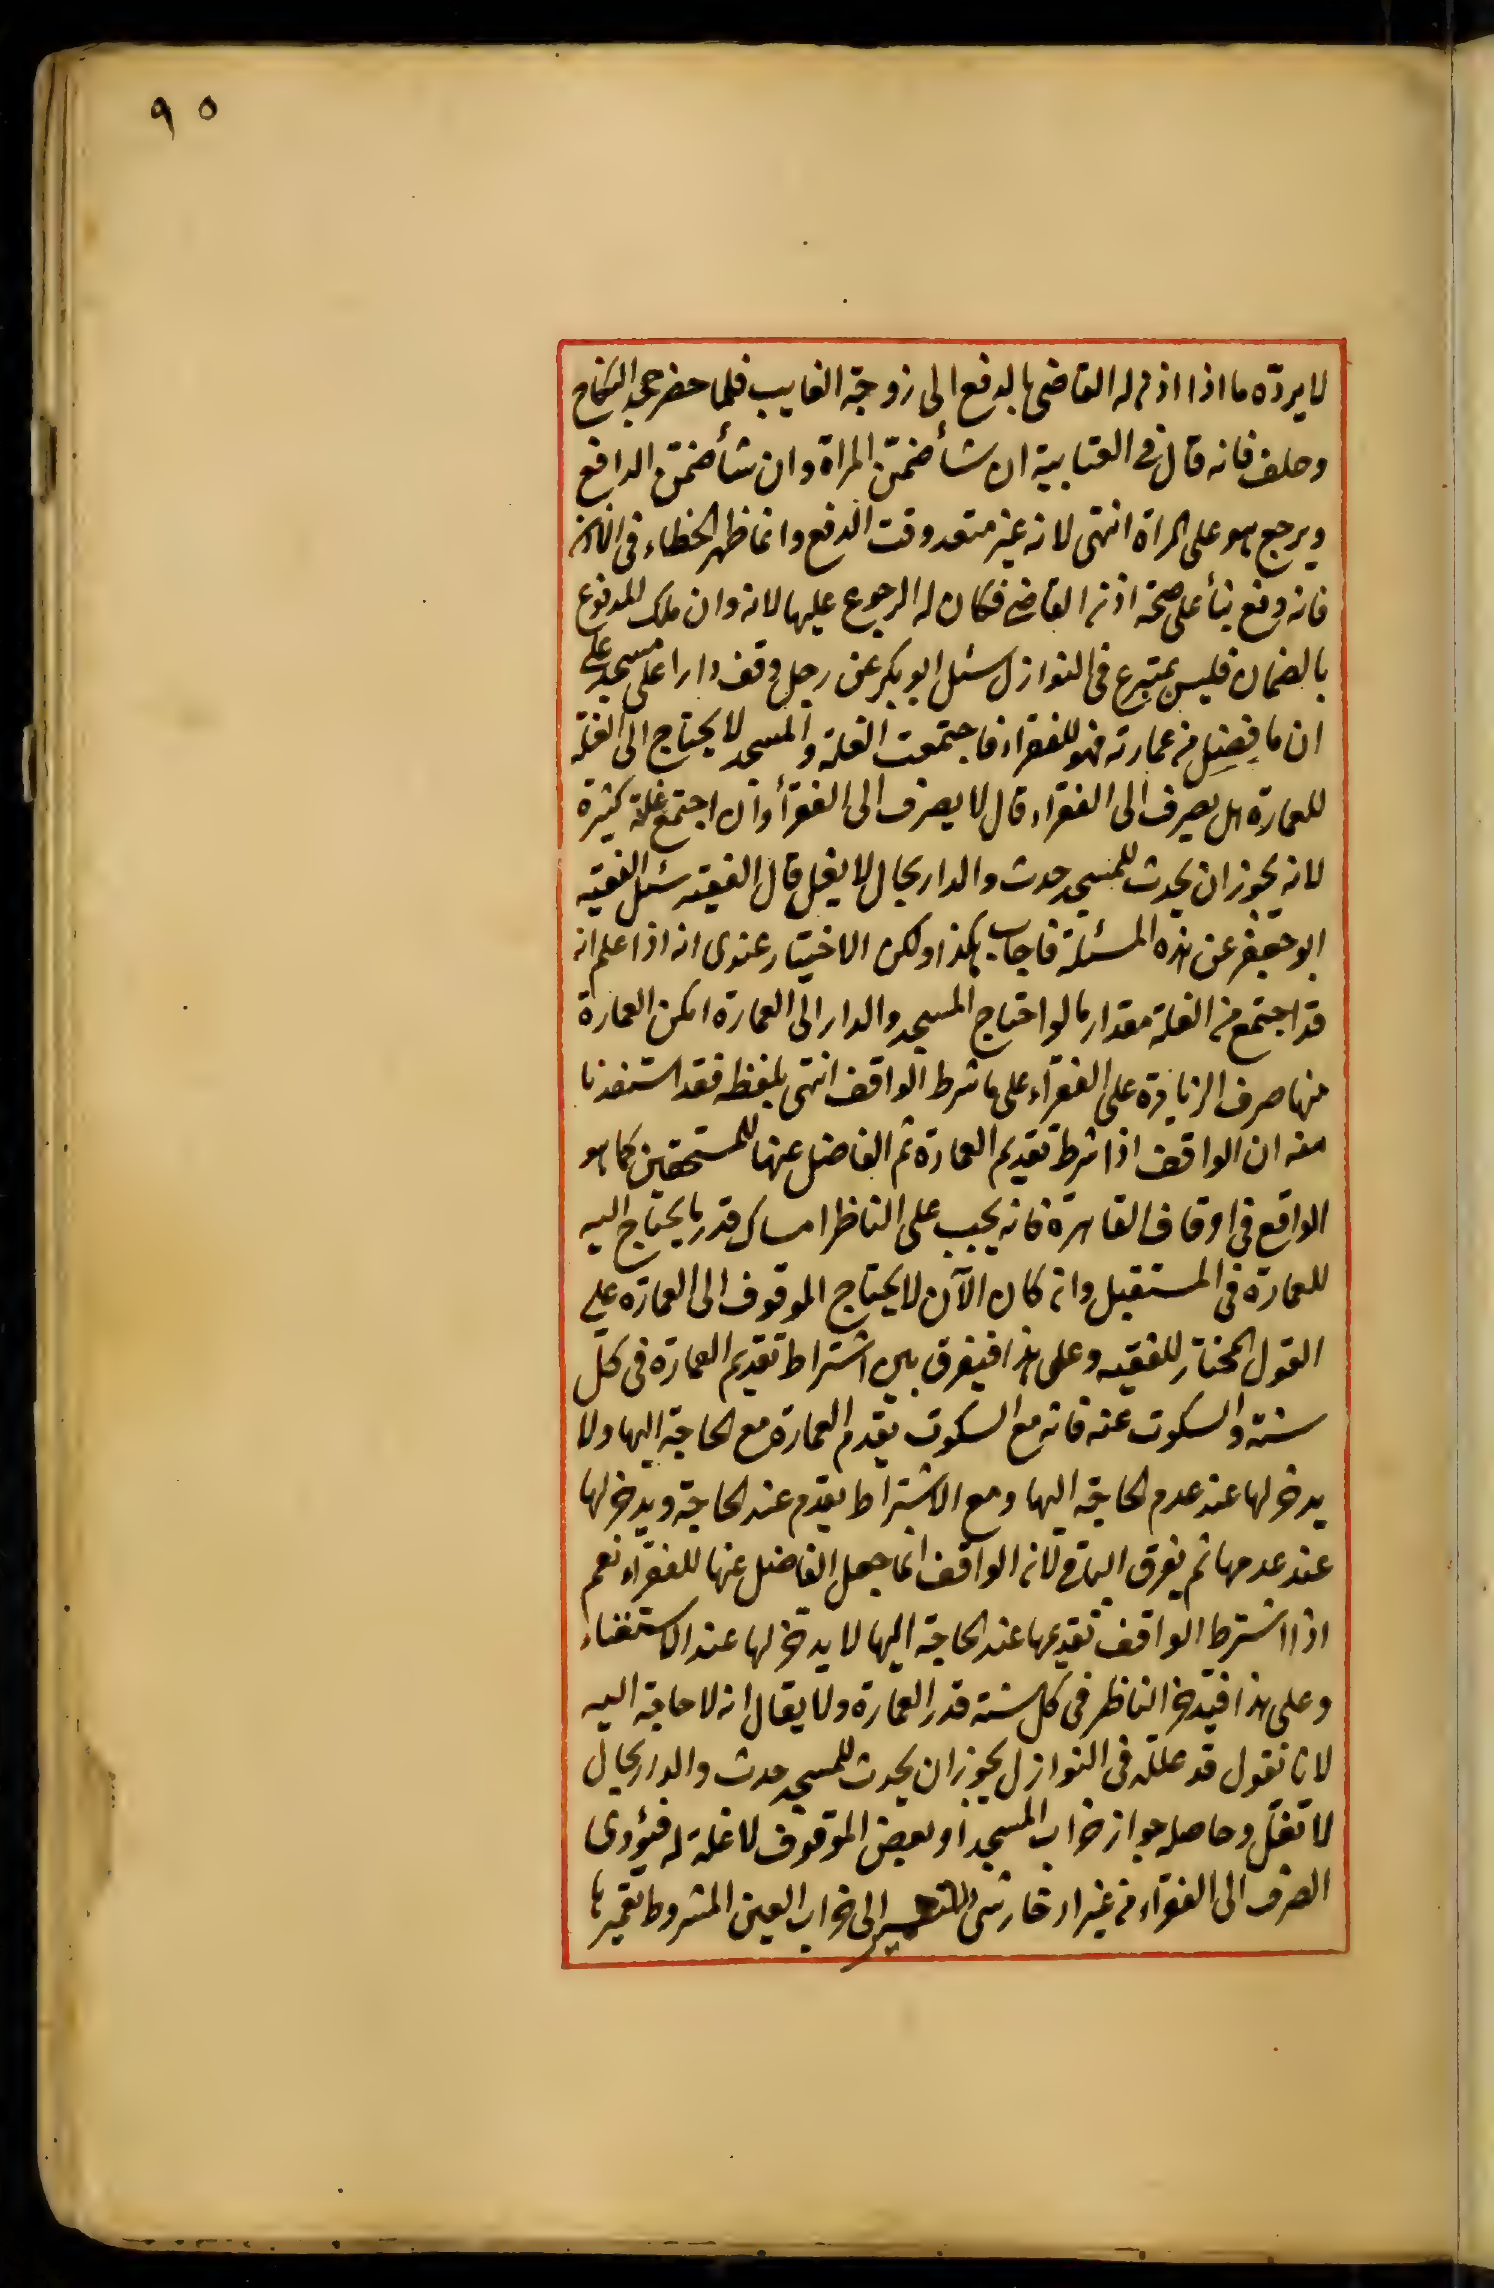 ٩٥
لا يردّه ما اذا اذن له القاضى بالدفع الى زوجة الغايب فلما حضر جحد النكاح
وحلف فانه قال فى العتابية ان شأ ضمّن المراة وان شأ ضمّن الدافع
ويرجع هو على المراة انتهى لانه غير متعد وقت الدفع وانما ظهر الخطاء فى الاذن
فانه دفع بنأ على صحة اذن القاضى فكان له الرجوع عليها لانه وان ملك المدفوع
بالضمان فليس بمتبرع فى النوازل سئل ابو بكر عن رجل وقف دارا على مسجد على
ان ما فضل من عمارته فهو للفقراء فاجتمعت الغلة والمسجد لا يحتاج الى الغلة
للعمارة هل يصرف الى الفقراء قال لا يصرف الى الفقرأ وان اجتمع غلة كثيرة
لانه يجوز ان يحدث للمسجد حدث والدار بحال لا يغل قال الفقيه سئل الفقيه
ابو جعفر عن هذه المسئلة فاجاب هكذا ولكن الاختيار عندى انه اذا علم انه
قد اجتمع من الغلة مقدار ما لو احتاج المسجد والدار الى العمارة امكن العمارة
منها صرف الزيادة على الفقراء على ما شرط الواقف انتهى بلفظه فقد استفدنا
منه ان الواقف اذا شرط تقديم العمارة ثم الفاضل عنها للمستحقين كما هو
الواقع فى اوقاف القاهرة فانه يجب على الناظر امساك قدر ما يحتاج اليه
للعمارة فى المستقبل وان كان الآن لا يحتاج الموقوف الى العمارة على
القول المختار للفقيه وعلى هذا فيفرق بين اشتراط تقديم العمارة فى كلّ
سنة والسكوت عنه فانه مع السكوت تقدم العمارة مع الحاجة اليها ولا
يدخر لها عند عدم الحاجة اليها ومع الاشتراط يقدم عند الحاجة ويدخر لها
عند عدمها ثم يفرق الباقى لان الواقف انما جعل الفاضل عنها للفقراء نعم
اذا اشترط الواقف تقديمها عند الحاجة اليها لا يدخر لها عند الاستغناء
وعلى هذا فيدّخر الناظر فى كل سنة قدر العمارة ولا يقال انه لا حاجة اليه
لانا نقول قد علله فى النوازل يجوز ان يحدث للمسجد حدث والدار بحال
لا تغل وحاصله جواز خراب المسجد او بعض الموقوف لا غلة له فيؤدى
الصرف الى الفقراء من غير ادخار شئ للتعمير الى خراب العين المشروط تعميرها